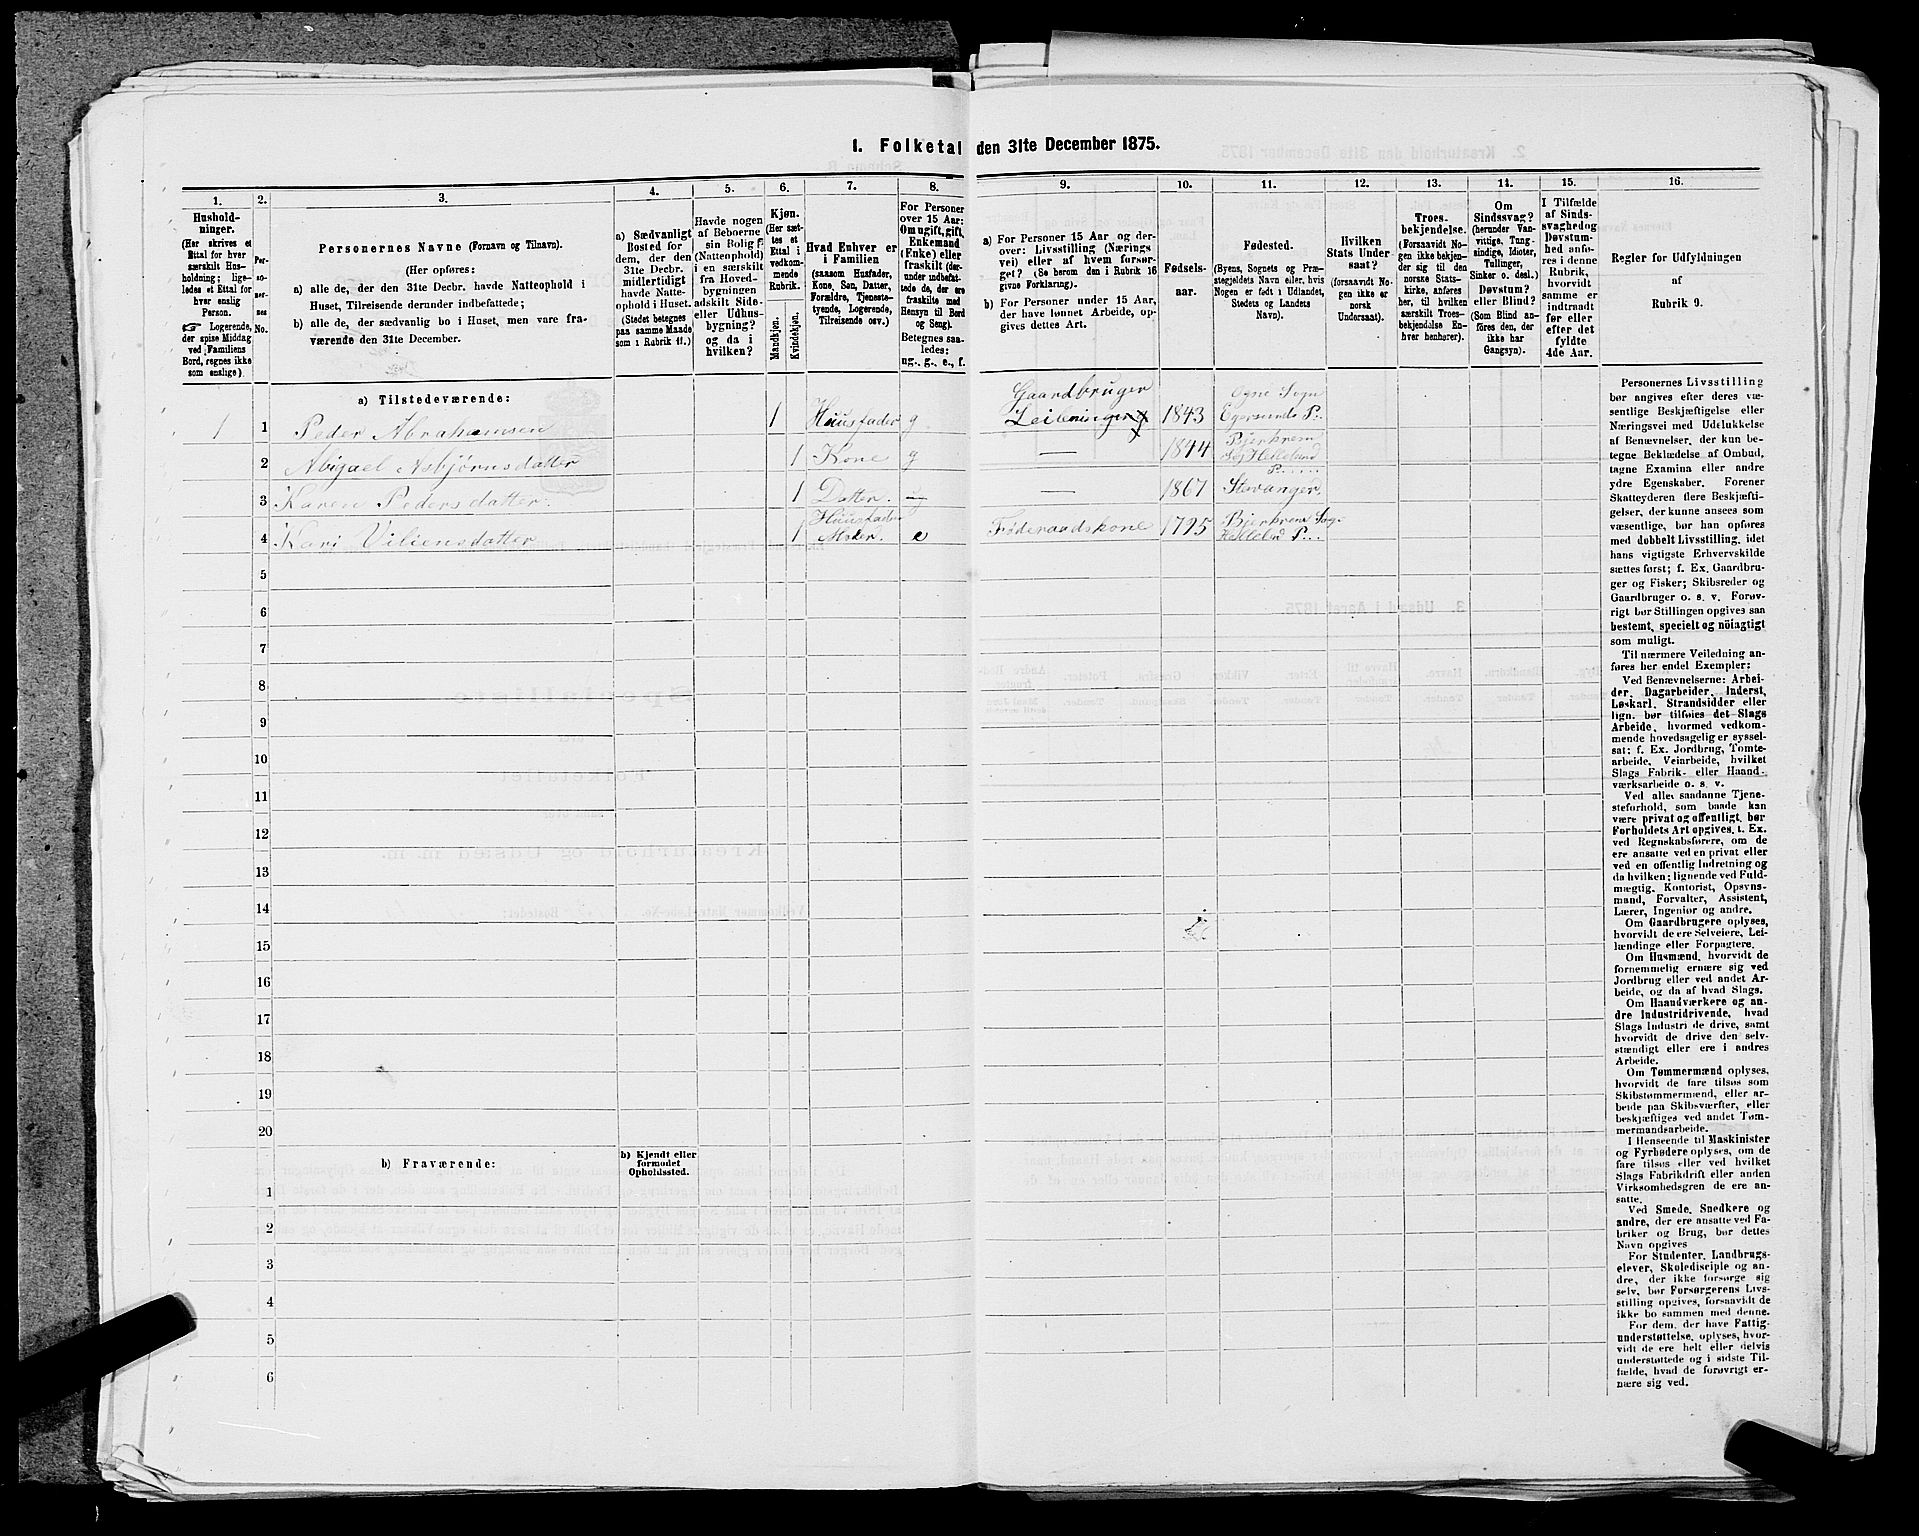 1. Folketal den 31te December 1875.
1.
2.
3.
4.
5.
6.
7.
8.
9.
10.
11.
12.
13.
14.
15.
16.
Hushold-
ninger.
(Her skrives et
Ettal for hver
særskilt Hus-
holdning; lige-
ledes et Ettal for
hver enslig
Person.
☞ Logerende,
der spise Middag
ved Familiens
Bord, regnes ikke
som enslige).
Per-
so-
ner-
nes
No.
Personernes Navne (Fornavn og Tilnavn).
(Her opføres:
a) alle de, der den 31te Decbr. havde Natteophold i
Huset, Tilreisende derunder indbefattede;
b) alle de, der sædvanlig bo i Huset, men vare fra-
værende den 31te December.
a) Sædvanligt
Bosted for
dem, der den
31te Decbr.
midlertidigt
havde Natte-
ophold i Huset.
(Stedet betegnes
paa samme Maade
som i Rubrik 11.)
Havde nogen
af Beboerne
sin Bolig
(Natteophold)
i en særskilt
fra Hoved-
bygningen
adskilt Side-
eller Udhus-
bygning?
og da i
hvilken?
Kjøn.
(Her sæt-
tes et
Ettal i
vedkom-
mende
Rubrik.
Mandkjøn.
Kvindekjøn.
Hvad Enhver er
i Familien
(saasom Husfader,
Kone, Søn, Datter,
Forældre, Tjeneste-
tyende, Logerende,
Tilreisende osv.)
For Personer
over 15 Aar:
Om ugift, gift,
Enkemand
(Enke) eller
fraskilt (der-
under indbefat-
tede de, der ere
fraskilte med
Hensyn til Bord
og Seng).
Betegnes saa-
ledes:
ug., g., e., f.
a) For Personer 15 Aar og der-
over: Livsstilling (Nærings
vei) eller af hvem forsør-
get? (Se herom den i Rubrik 16
givne Forklaring).
b) For Personer under 15 Aar,
der have lønnet Arbeide, op-
gives dettes Art.
Fødsels-
aar.
Fødested.
(Byens, Sognets og Præ-
stegjeldets Navn eller, hvis
Nogen er født i Udlandet,
Stedets og Landets
Navn).
Hvilken
Stats Under-
saat?
(forsaavidt No-
gen ikke er
norsk
Undersaat).
Troes-
bekjendelse.
(Forsaavidt No-
gen ikke bekjen-
der sig til den
norske Stats-
kirke, anføres
her, til hvilken
særskilt Troes-
bekjendelse En-
hver henhører).
Om
Sindssvag?
(herunder Van-
vittige, Tung-
sindige, Idioter,
Tullinger,
Sinker o. desl.)
Døvstum?
eller Blind?
(Som Blind an-
føres den, der
ikke har
Gangsyn).
I Tilfælde
af Sinds-
svaghed og
Døvstum-
hed anfø-
res i denne
Rubrik,
hvorvidt
samme er
indtraadt
før eller
efter det
fyldte
4de Aar.
Regler for Udfyldningen
af
Rubrik 9.
a) Tilstedeværende:
Gaardbruger
Ogne Sogn
1 1 Peder Abrahamsen 1 Huusfader g Leilending 1843 Egersunds P:
2 Abigael Asbjørnsdatter 1 Kone g — 1844 Bjerkrem
Sog Helleland
P.
3 Karen Pedersdatter. 1 Datter. — — 1867 Stavanger.
4 Kari Viliensdatter 1 Huusfader
Moder. e Føderaadskone 1795 Bjerkrem Sog
Helleland P.
5
6
7
8
9
10
11
12
13
14
15
16
17
18
19
20
b) Fraværende:
b) Kjendt eller
formodet
Opholdssted.
1
2
3
4
5
6
Personernes Livsstilling
bør angives efter deres væ-
sentlige Beskjæftigelse eller
Næringsvei med Udelukkelse
af Benævnelser, der kun be-
tegne Beklædelse af Ombud,
tagne Examina eller andre
ydre Egenskaber. Forener
Skatteyderen flere Beskjæfti-
gelser, der kunne ansees som
væsentlige, bør han opføres
med dobbelt Livsstilling, idet
hans vigtigste Erhvervskilde
sættes først; f. Ex. Gaardbru-
ger og Fisker; Skibsreder og
Gaardbruger o. s. v. Forøv-
rigt bør Stillingen opgives saa
bestemt, specielt og nöiagtigt
som muligt.
Til nærmere Veiledning an-
føres her endel Exempler:
Ved Benævnelserne: Arbei-
der, Dagarbeider, Inderst,
Løskarl, Strandsidder eller
lign. bør tilføies det Slags
Arbeide, hvormed vedkom-
mende hovedsagelig er syssel-
sat; f. Ex. Jordbrug, Tomte-
arbeide, Veiarbeide, hvilket
Slags Fabrik- eller Haand-
værksarbeide o. s. v.
Ved alle saadanne Tjene-
steforhold, som baade kan
være privat og offentligt, bør
Forholdets Art opgives, t. Ex.
ved Regnskabsførere, om de
ere ansatte ved en privat eller
ved en offentlig Indretning og
da hvilken; lignende ved Fuld-
mægtig, Kontorist, Opsyns-
mand, Forvalter, Assistent,
Lærer, Ingeniør og andre.
Om Gaardbrugere oplyses,
hvorvidt de ere Selveiere, Lei-
lændinge eller Forpagtere.
Om Husmænd, hvorvidt de
fornemmelig ernære sig ved
Jordbrug eller ved andet Ar-
beide, og da af hvad Slags.
Om Haandværkere og an-
dre Industridrivende, hvad
Slags Industri de drive, samt
hvorvidt de drive den selv-
stændigt eller ere i andres
Arbeide.
Om Tømmermænd oplyses,
hvorvidt de fare tilsøs som
Skibstømmermænd, eller ar-
beide paa Skibsværfter, eller
beskjæftiges ved andet Tøm-
mermandsarbeide.
I Henseende til Maskinister
og Fyrbødere oplyses, om de
fare tilsøs eller ved hvilket
Slags Fabrikdrift eller anden
Virksomhedsgren de ere an-
satte.
Ved Smede, Snedkere og
andre, der ere ansatte ved Fa-
briker og Brug, bør dettes
Navn opgives
For Studenter, Landbrugs-
elever, Skoledisciple og an-
dre, der ikke forsørge sig
selv, bør Forsørgerens Livs-
stilling opgives, forsaavidt de
ikke bo sammen med denne.
For dem, der have Fattig-
understøttelse, oplyses, hvor-
vidt de ere helt eller delvis
understøttede og i sidste Til-
fælde, hvad de forøvrigt er-
nære sig ved.